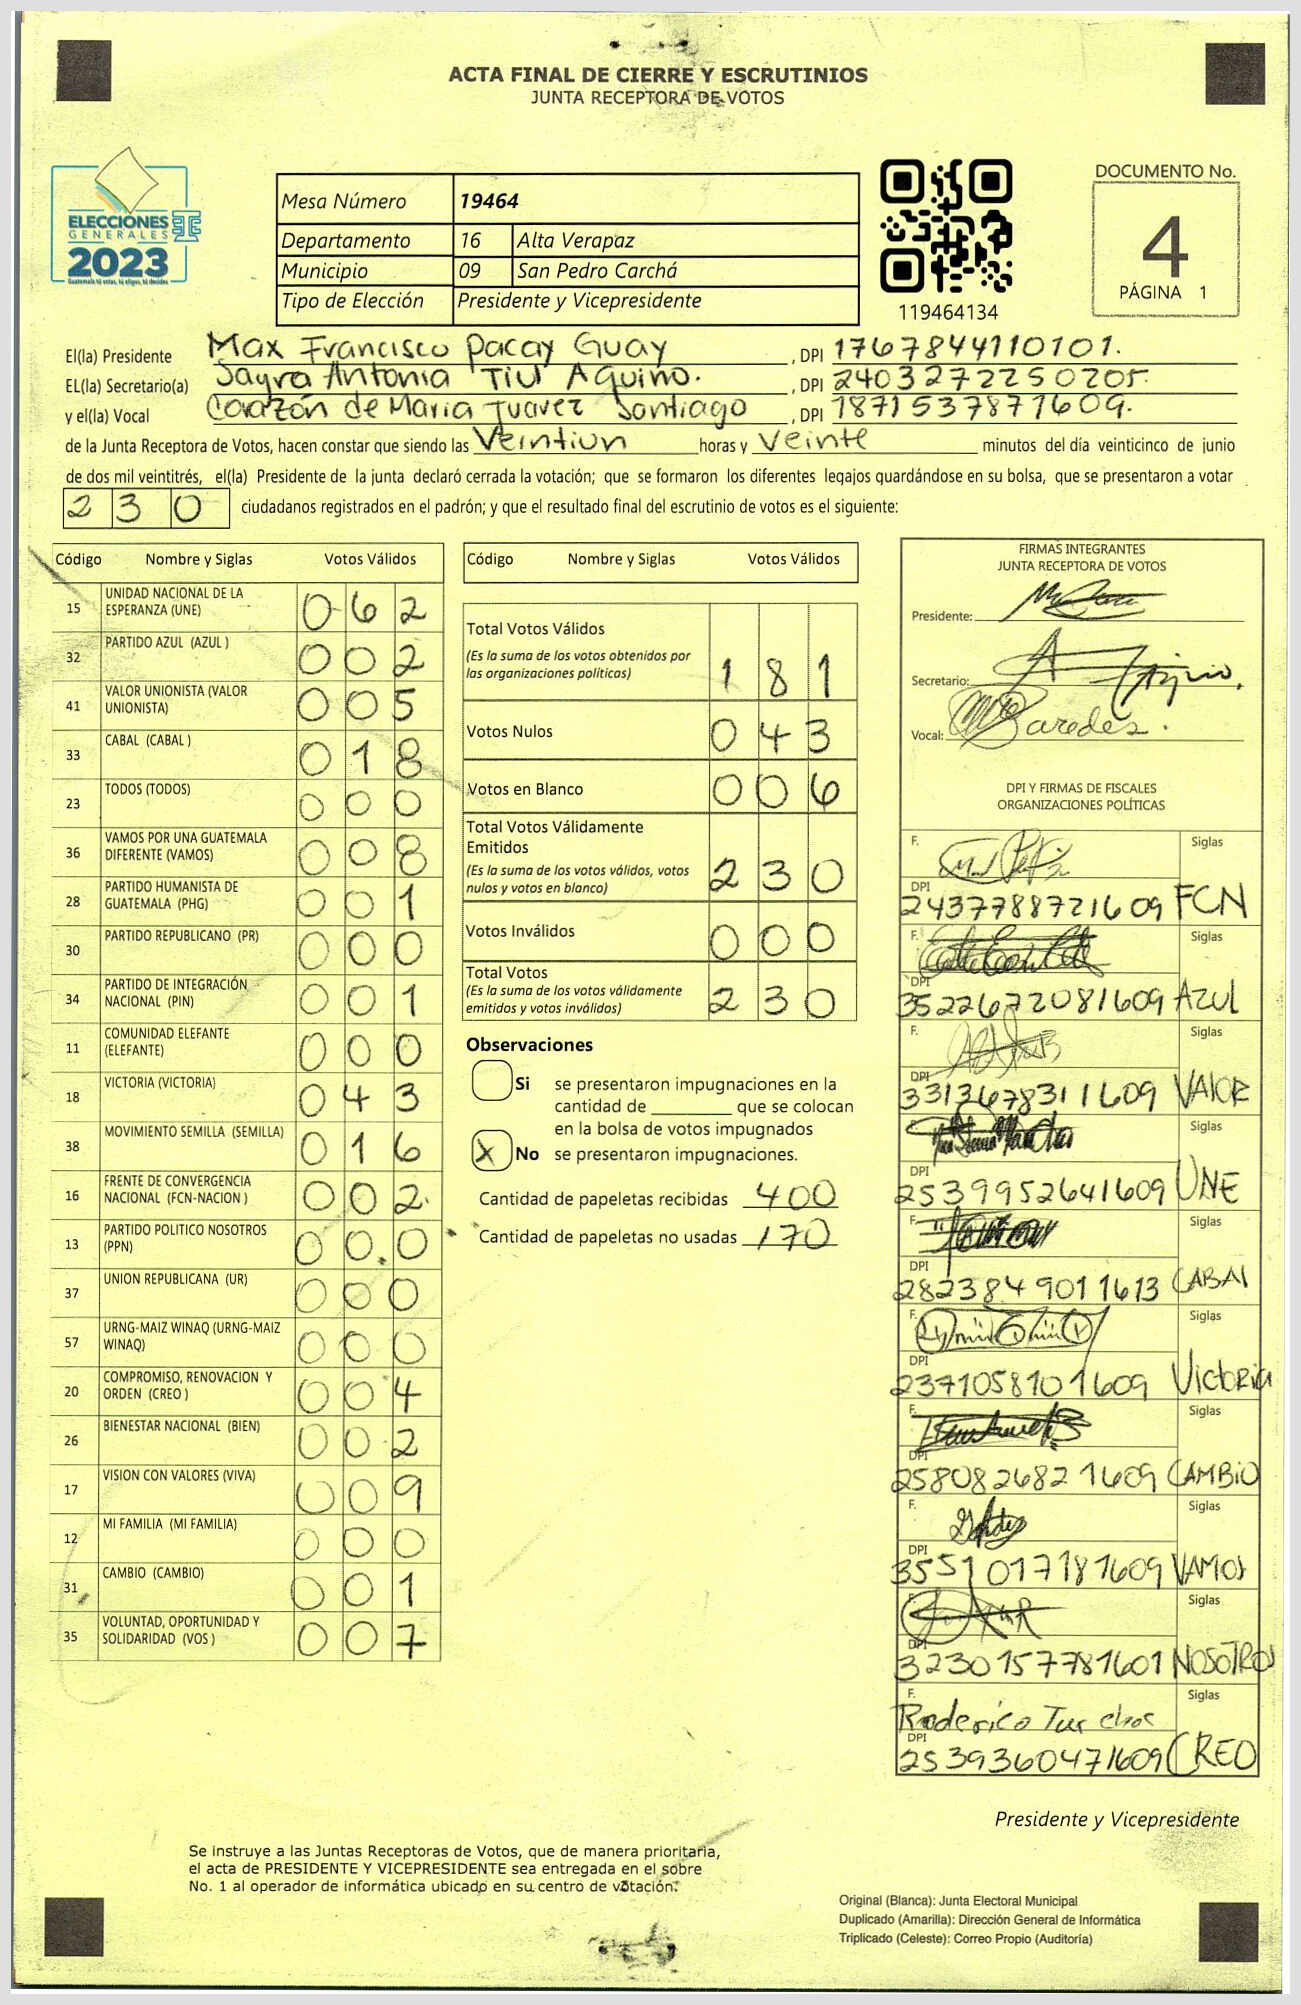 ACTA FINAL DE CIERRE Y ESCRUTINIOS
JUNTA RECEPTORA DE VOTOS
ELECCIONES
GENERALES
2023
Guatemala tú votas, tú eliges, tú decides
Mesa Número 19464
Departamento 16 Alta Verapaz
Municipio 09 San Pedro Carchá
Tipo de Elección Presidente y Vicepresidente
119464134
DOCUMENTO No.
4
PÁGINA 1
El(la) Presidente Max Francisco Pacay Guay, DPI 1767844110101.
EL(la) Secretario(a) Sayra Antonia Tiul Aquino., DPI 2403272250205.
y el(la) Vocal Corazón de Maria Juarez Santiago, DPI 1871537871609.
de la Junta Receptora de Votos, hacen constar que siendo las Veintiun horas y Veinte minutos del día veinticinco de junio
de dos mil veintitrés, el(la) Presidente de la junta declaró cerrada la votación; que se formaron los diferentes legajos guardándose en su bolsa, que se presentaron a votar
230 ciudadanos registrados en el padrón; y que el resultado final del escrutinio de votos es el siguiente:
Código Nombre y Siglas Votos Válidos
15 UNIDAD NACIONAL DE LA ESPERANZA (UNE) 062
32 PARTIDO AZUL (AZUL ) 002
41 VALOR UNIONISTA (VALOR UNIONISTA) 005
33 CABAL (CABAL ) 018
23 TODOS (TODOS) 000
36 VAMOS POR UNA GUATEMALA DIFERENTE (VAMOS) 008
28 PARTIDO HUMANISTA DE GUATEMALA (PHG) 001
30 PARTIDO REPUBLICANO (PR) 000
34 PARTIDO DE INTEGRACIÓN NACIONAL (PIN) 001
11 COMUNIDAD ELEFANTE (ELEFANTE) 000
18 VICTORIA (VICTORIA) 043
38 MOVIMIENTO SEMILLA (SEMILLA) 016
16 FRENTE DE CONVERGENCIA NACIONAL (FCN-NACION ) 002.
13 PARTIDO POLITICO NOSOTROS (PPN) 000
37 UNION REPUBLICANA (UR) 000
57 URNG-MAIZ WINAQ (URNG-MAIZ WINAQ) 000
20 COMPROMISO, RENOVACION Y ORDEN (CREO ) 004
26 BIENESTAR NACIONAL (BIEN) 002
17 VISION CON VALORES (VIVA) 009
12 MI FAMILIA (MI FAMILIA) 000
31 CAMBIO (CAMBIO) 001
35 VOLUNTAD, OPORTUNIDAD Y SOLIDARIDAD (VOS ) 007
Código Nombre y Siglas Votos Válidos
Total Votos Válidos
(Es la suma de los votos obtenidos por
las organizaciones politicas) 181
Votos Nulos 043
Votos en Blanco 006
Total Votos Válidamente
Emitidos
(Es la suma de los votos válidos, votos
nulos y votos en blanco) 230
Votos Inválidos 000
Total Votos
(Es la suma de los votos válidamente
emitidos y votos inválidos) 230
Observaciones
Si se presentaron impugnaciones en la
cantidad de ________ que se colocan
en la bolsa de votos impugnados
X No se presentaron impugnaciones.
Cantidad de papeletas recibidas 400
Cantidad de papeletas no usadas 170
FIRMAS INTEGRANTES
JUNTA RECEPTORA DE VOTOS
Presidente:
Secretario:
Vocal:
DPI Y FIRMAS DE FISCALES
ORGANIZACIONES POLÍTICAS
F. Siglas
DPI 2437788721609 FCN
F. Siglas
DPI 3522672081609 AZUL
F. Siglas
DPI 3313678311609 VALOR
F. Siglas
DPI 2539952641609 UNE
F. Siglas
DPI 2823849011613 CABAL
F. Siglas
DPI 2371058101609 Victoria
F. Siglas
DPI 2580826821609 CAMBIO
F. Siglas
DPI 3551017181609 VAMOS
F. Siglas
DPI 3230157781601 NOSOTROS
F. Roderico Tux choc Siglas
DPI 2539360471609 CREO
Presidente y Vicepresidente
Se instruye a las Juntas Receptoras de Votos, que de manera prioritaria,
el acta de PRESIDENTE Y VICEPRESIDENTE sea entregada en el sobre
No. 1 al operador de informática ubicado en su centro de votación.
Original (Blanca): Junta Electoral Municipal
Duplicado (Amarilla): Dirección General de Informática
Triplicado (Celeste): Correo Propio (Auditoría)